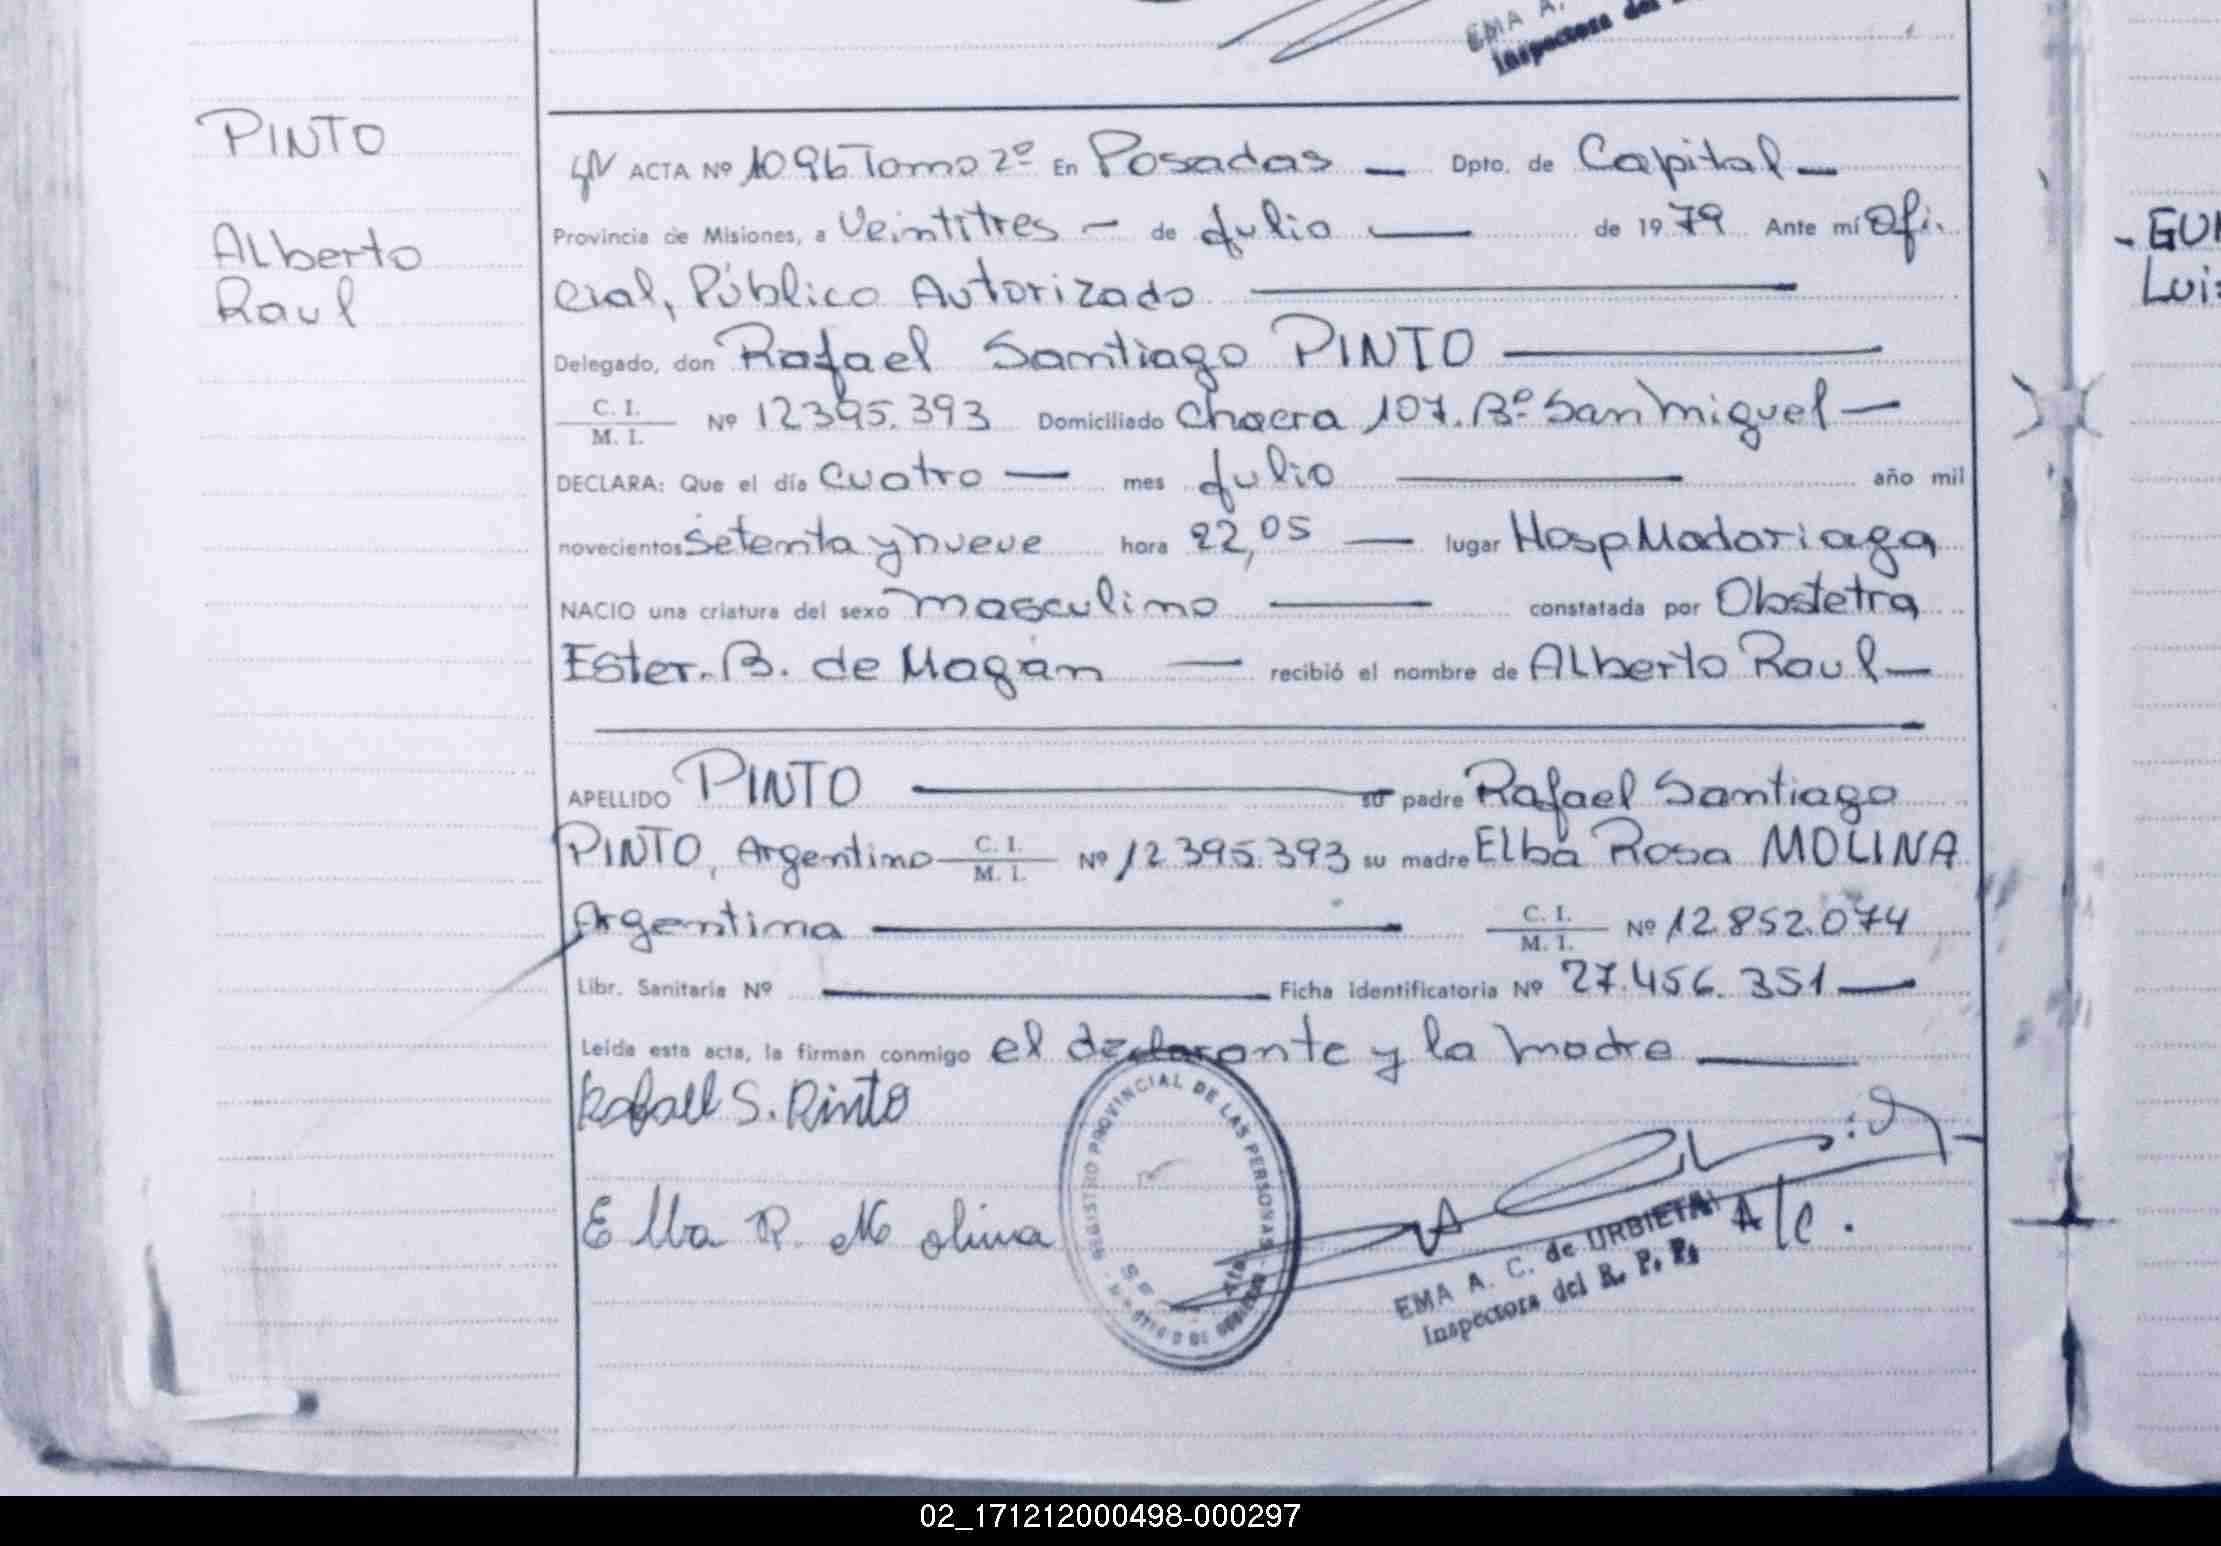 EMA A.
Inspectora del
PINTO
Alberto
Raul
ACTA Nº 1096 Tomo 2º En Posadas — Dpto. de Capital —
Provincia de Misiones, a Veintitres — de Julio — de 1979 Ante mí Ofi-
cial, Público Autorizado —
Delegado, don Rafael Santiago PINTO —
C. I. / M. I. Nº 12395.393 Domiciliado Chacra 107. Bº San Miguel —
DECLARA: Que el día Cuatro — mes Julio — año mil
novecientos Setenta y nueve hora 22,05 — lugar Hosp Madariaga
NACIO una criatura del sexo masculino — constatada por Obstetra
Ester. B. de Magán — recibió el nombre de Alberto Raul —
APELLIDO PINTO — su padre Rafael Santiago
PINTO, Argentino C. I. / M. I. Nº 12395.393 su madre Elba Rosa MOLINA
Argentina — C. I. / M. I. Nº 12.852.074
Libr. Sanitaria Nº — Ficha identificatoria Nº 27.456.351 —
Leída esta acta, la firman conmigo el declarante y la madre —
Rafael S. Pinto
Elba R. Molina
REGISTRO PROVINCIAL DE LAS PERSONAS
A/c.
EMA A. C. de URBIETA
Inspectora del R. P. P.
- GUI
Luis
02_171212000498-000297